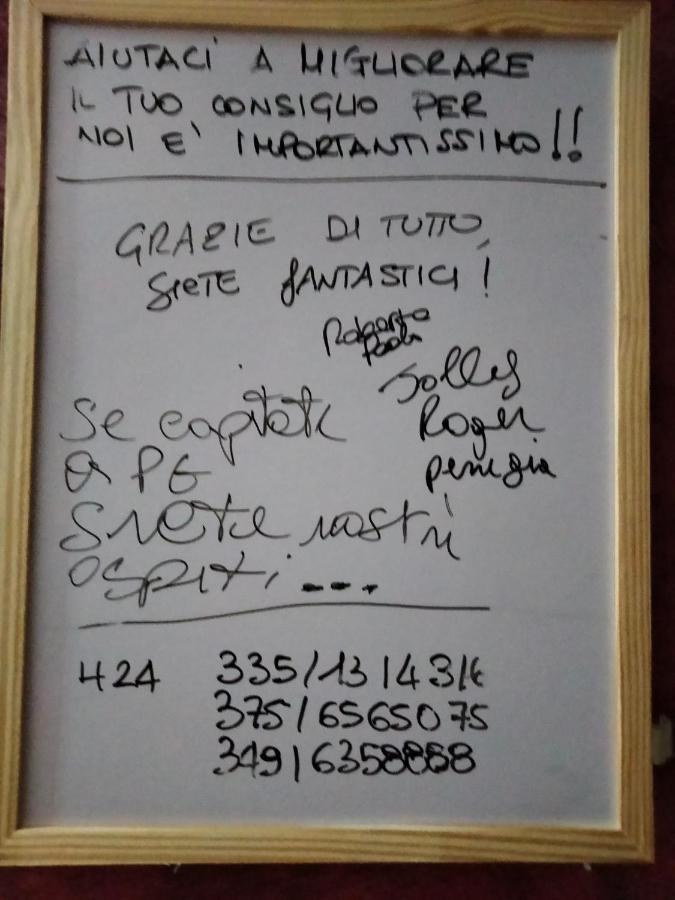 AIUTACI A MIGLIORARE
IL TUO CONSIGLIO PER
NOI E' IMPORTANTISSIMO!!
GRAZIE DI TUTTO,
SIETE FANTASTICI!
Paola
Se capitate
a PG
Siete nostri
ospiti...
Roger
perugia
424 335/1314316
375/6565075
349/6358868